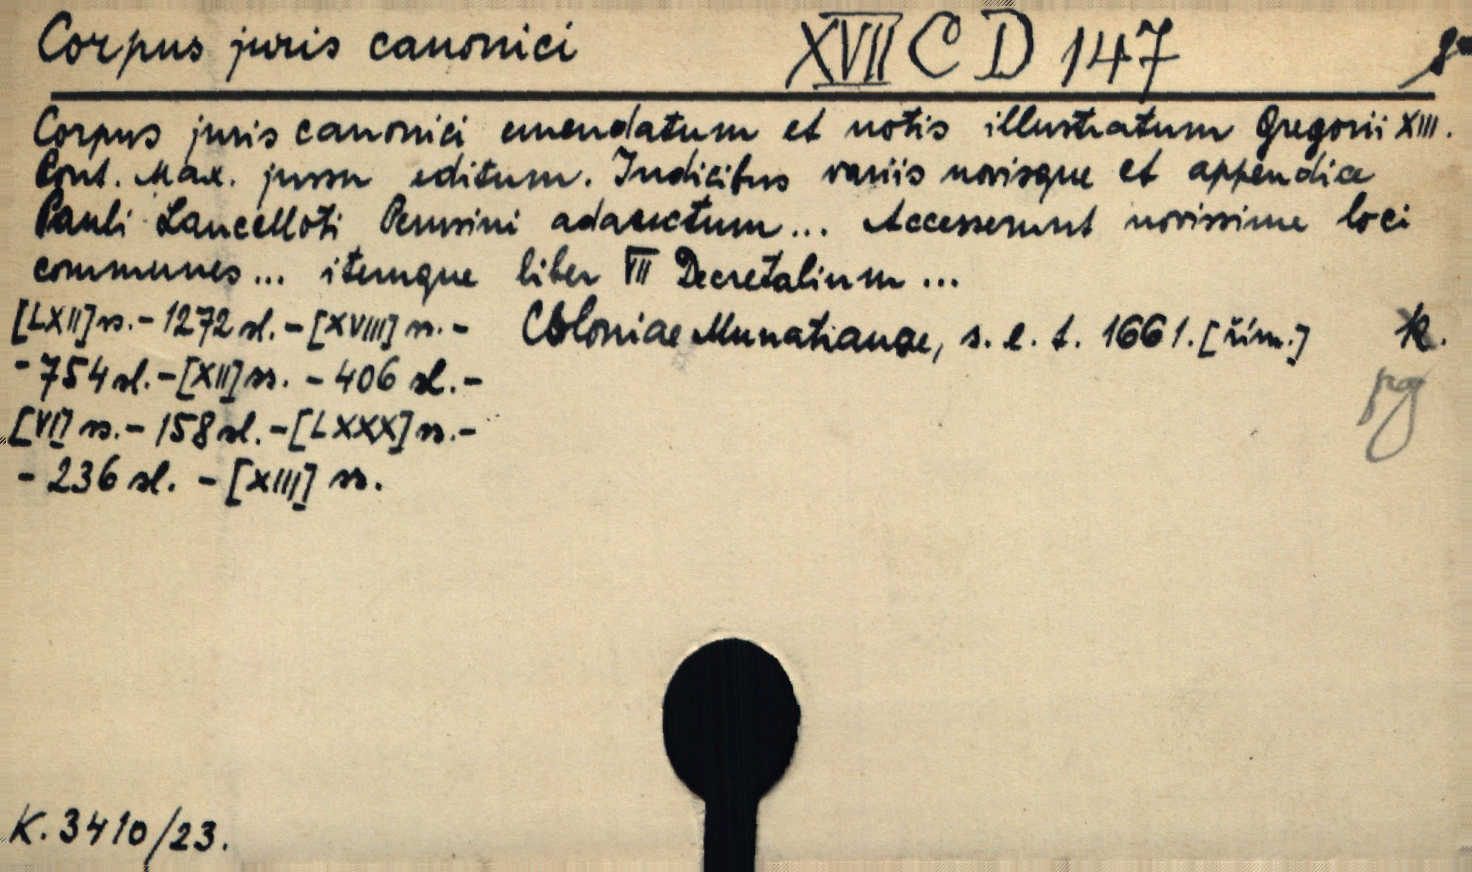 Corpus juris canonici XVII C D 147 8°
Corpus juris canonici emendatum et notis illustratum Gregorii XIII.
Pont. Max. jussu editum. Indicibus variis novisque et appendice
Pauli Lancelloti Perusini adauctum... Accesserunt novissime loci
communes... itemque liber VII Decretalium...
[LXII] ss. - 1272 sl. - [XVIII] ss. - Coloniae Munatianae, s. e. t. 1661. [řím.] K.
- 754 sl. - [XII] ss. - 406 sl. -
[VI] ss. - 158 sl. - [LXXX] ss. -
- 236 sl. - [XIII] ss.
K. 3410/23.